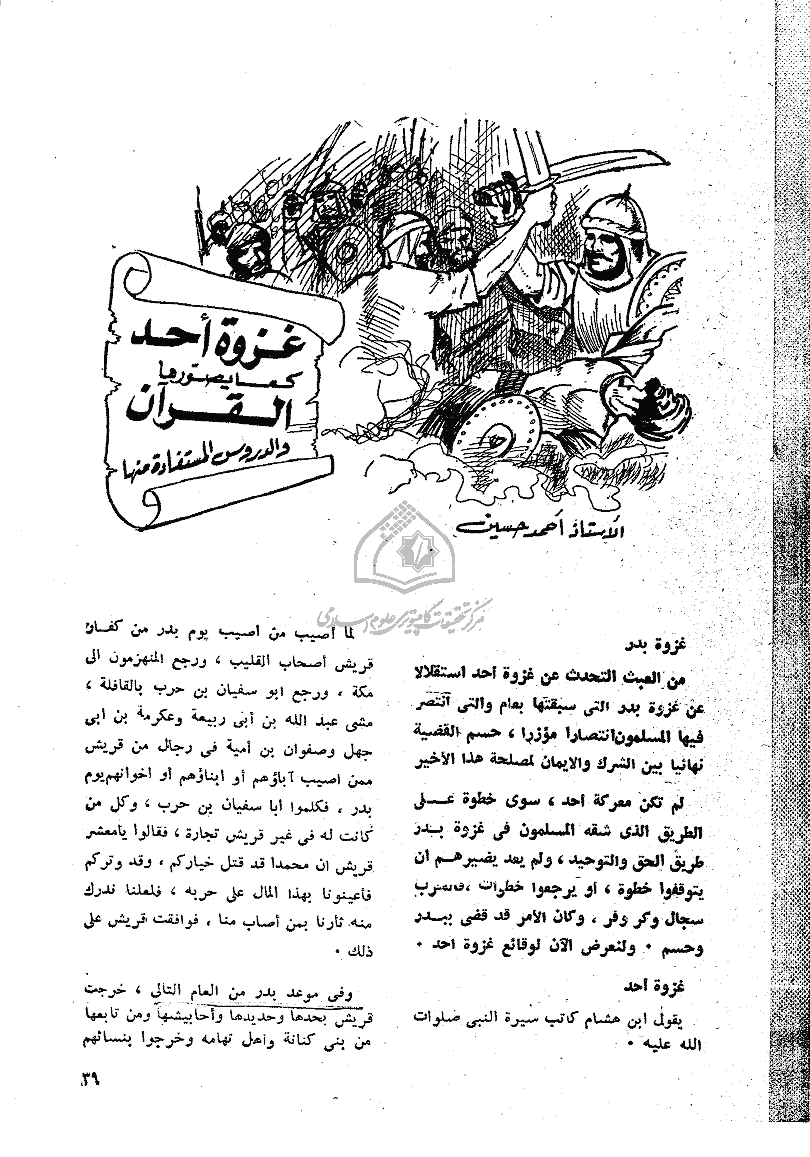 غزوة أحد
كما يصورها
القرآن
والدروس المستفادة منها
الأستاذ أحمد حسين
مركز تحقيقات كامپيوترى علوم اسلامى
غزوة بدر
من العبث التحدث عن غزوة أحد استقلالا
عن غزوة بدر التى سبقتها بعام والتى انتصر
فيها المسلمون انتصارا مؤزرا ، حسم القضية
نهائيا بين الشرك والايمان لمصلحة هذا الأخير
لم تكن معركة أحد ، سوى خطوة عـلـى
الطريق الذى شقه المسلمون فى غزوة بـدر
طريق الحق والتوحيد ، ولم يعد يضيرهـم أن
يتوقفوا خطوة ، أو يرجعوا خطوات ، فالحرب
سجال وكر وفر ، وكان الأمر قد قضى ببـدر
وحسم • ولنعرض الآن لوقائع غزوة أحد •
غزوة أحد
يقول ابن هشام كاتب سيرة النبى صلوات
الله عليه •
لما أصيب من أصيب يوم بدر من كفـار
قريش أصحاب القليب ، ورجع المنهزمون الى
مكة ، ورجع ابو سفيان بن حرب بالقافلة ،
مشى عبد الله بن أبى ربيعة وعكرمة بن ابى
جهل وصفوان بن أمية فى رجال من قريش
ممن اصيب آباؤهم أو ابناؤهم أو اخوانهم يوم
بدر ، فكلموا ابا سفيان بن حرب ، وكل من
كانت له فى غير قريش تجارة ، فقالوا يامعشر
قريش ان محمدا قد قتل خياركم ، وقد وتركم
فأعينونا بهذا المال على حربه ، فلعلنا ندرك
منه ثأرنا بمن أصاب منا ، فوافقت قريش على
ذلك •
وفى موعد بدر من العام التالى ، خرجت
قريش بحدها وحديدها وأحابيشها ومن تابعها
من بنى كنانة وأهل تهامه وخرجوا بنسائهم
٣٩